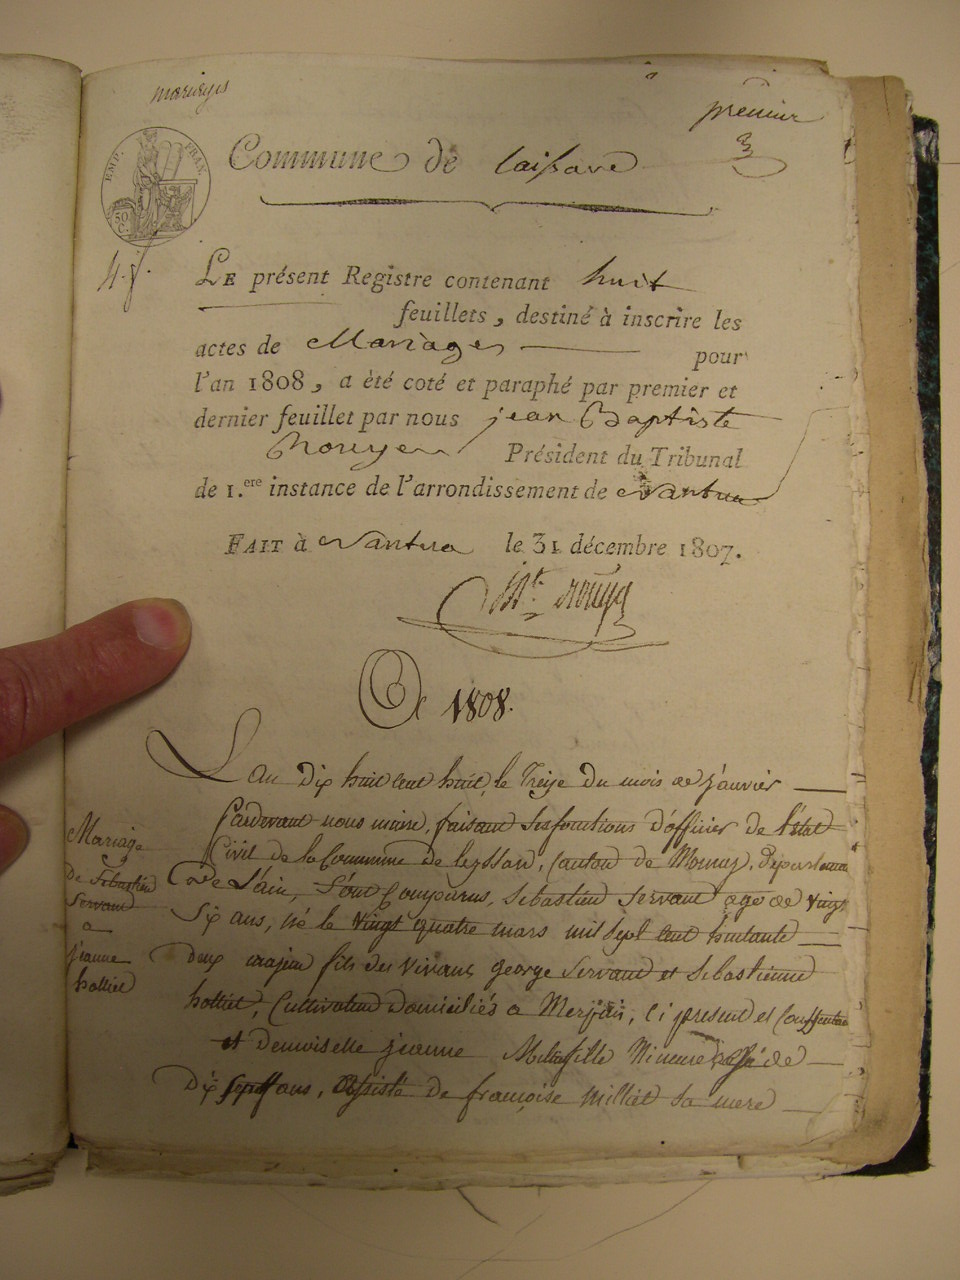 mariages
premier
EMP. FRAN.
50 C.
Commune de laissard
LE présent Registre contenant huit
feuillets, destiné à inscrire les
actes de Mariages pour
l'an 1808, a été coté et paraphé par premier et
dernier feuillet par nous jean Baptiste
Président du Tribunal
de 1.ere instance de l'arrondissement de Nantua
FAIT à Nantua le 31 décembre 1807.
1808.
L'an Dix huit cent huit, le Treize du mois de janvier
Pardevant nous maire, faisant les fonctions d'officier de l'état
Civil de la Commune de leyssard, Canton de
de L'ain, Sont Comparus, Sebastien Servant agé de vingt
Six ans, né le vingt quatre mars mil Sept Cent huitante
Deux majeur fils des vivans george Servant et Sebastienne
Cultivateurs Domiciliés a ci present et
et Demoiselle jeanne fille Mineure de
Dix Sept ans, assisté de françoise Milliet Sa mere
Mariage
De Sebastien
Servant
a
jeanne